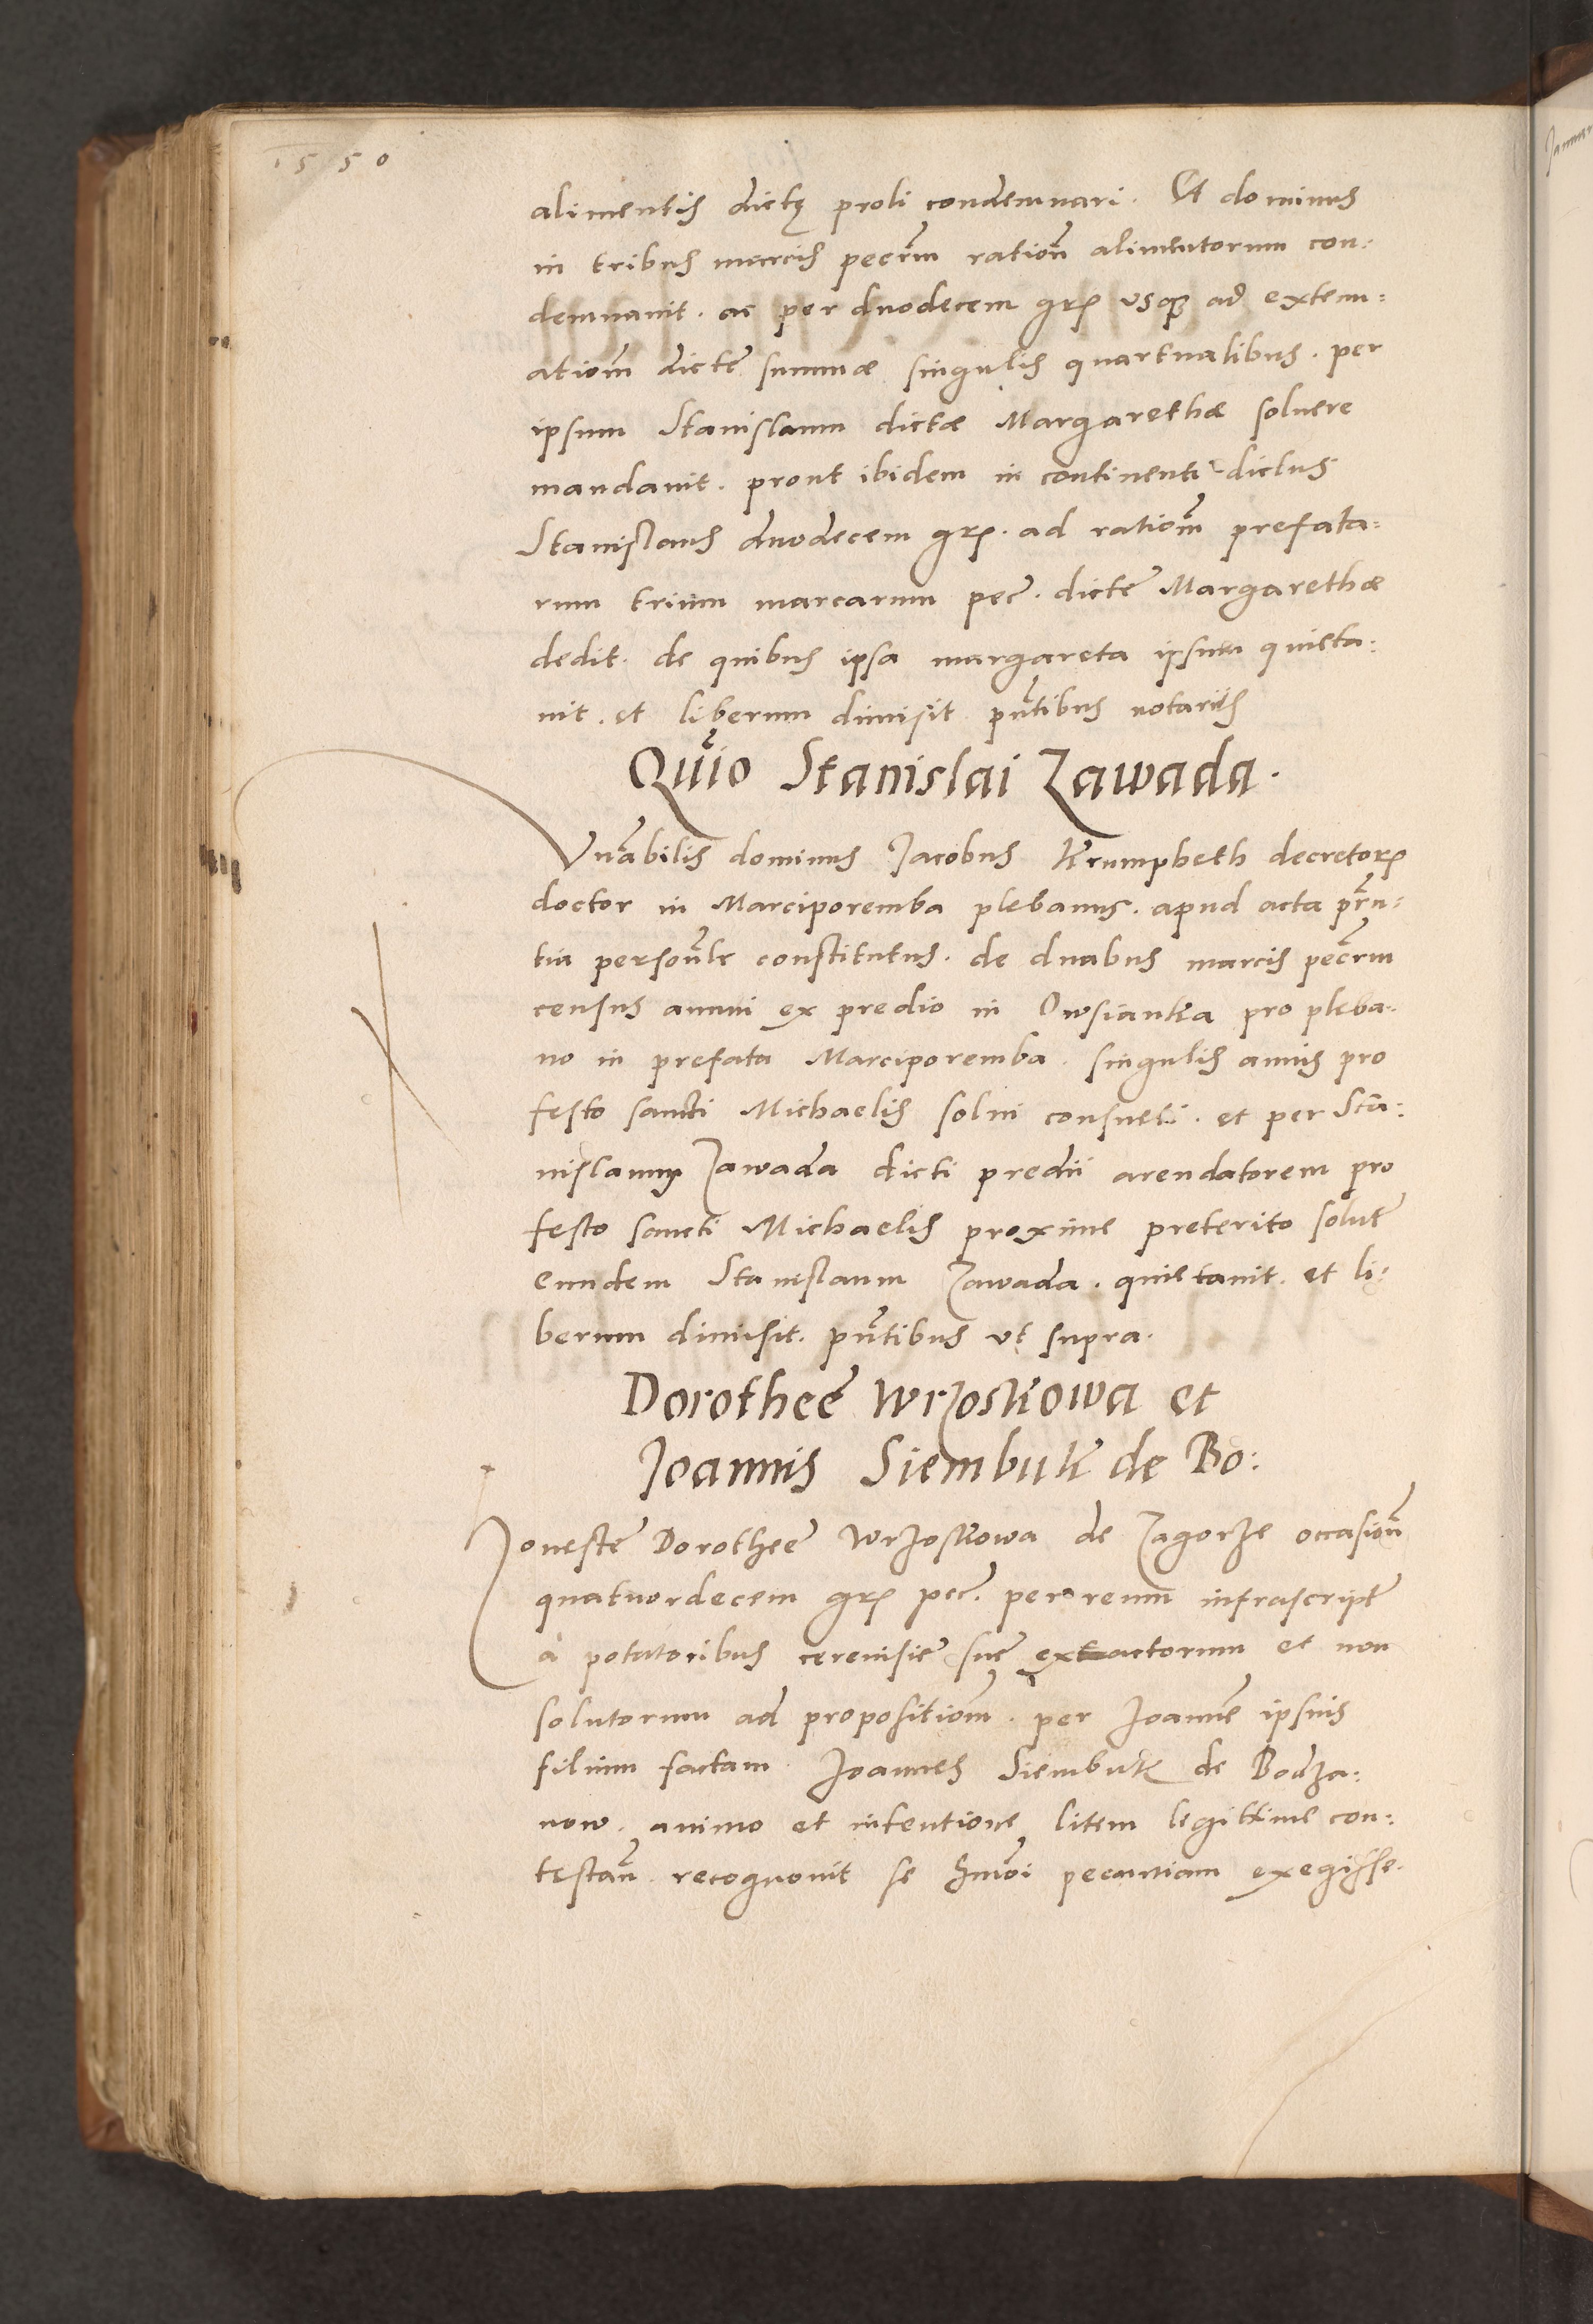 1550
alimentis dictę proli condemnari. Et dominus
in tribus marcis pecrm̃ rationẽ alimentorum con:
demnavit. ac per duodecem grꝭ vsqꝫ ad extenu:
ationẽ dictę summæ singulis quartualibus. per
ipsum Stanislaum dictæ Margarethæ soluere
mandauit. prout ibidem in continenti dictus
Stanislaus duodecem grꝭ. ad rationẽ prefata:
rum trium marcarum pec̃. dictę Margarethæ
dedit. de quibus ipsa margareta ipsum quieta:
uit. et liberum dimisit pñtibus notariis
Quĩo Stanislai Zawada.
Vnãbilis dominus Jacobus Krumpheth decretorꝭ
doctor in Marciporemba plebanus. apud acta prñ:
tia personãlr constitutus. de duabus marcis pecrm̃
census annui ex predio in Owsianka pro pleba:
no in prefata Marciporemba. singulis annis pro
festo sancti Michaelis solui consueti. et per Sta:
nislaum Zawada dicti predii arendatorem pro
festo sancti Michaelis proxime preterito solutẽ
eundem Stanislaum Zawada. quietauit. et li:
berum dimisit. pñtibus vt supra.
Dorotheę Wrzoskowa et
Joannis Siembuk de Bo:
Honestę Dorotheę Wrzoskowa de Zagorze occasionẽ
quatuordecem grꝭ pec̃. per reum infrascriptẽ
à potatoribus cereuisię suę extactorum et non
solutorum ad propositionẽ. per Joannẽ ipsius
filium factam Joannes Siembuk de Bodza:
now. animo et intentione litem legittime con:
testañ. recognouit se hmõi pecuniam exegisse.